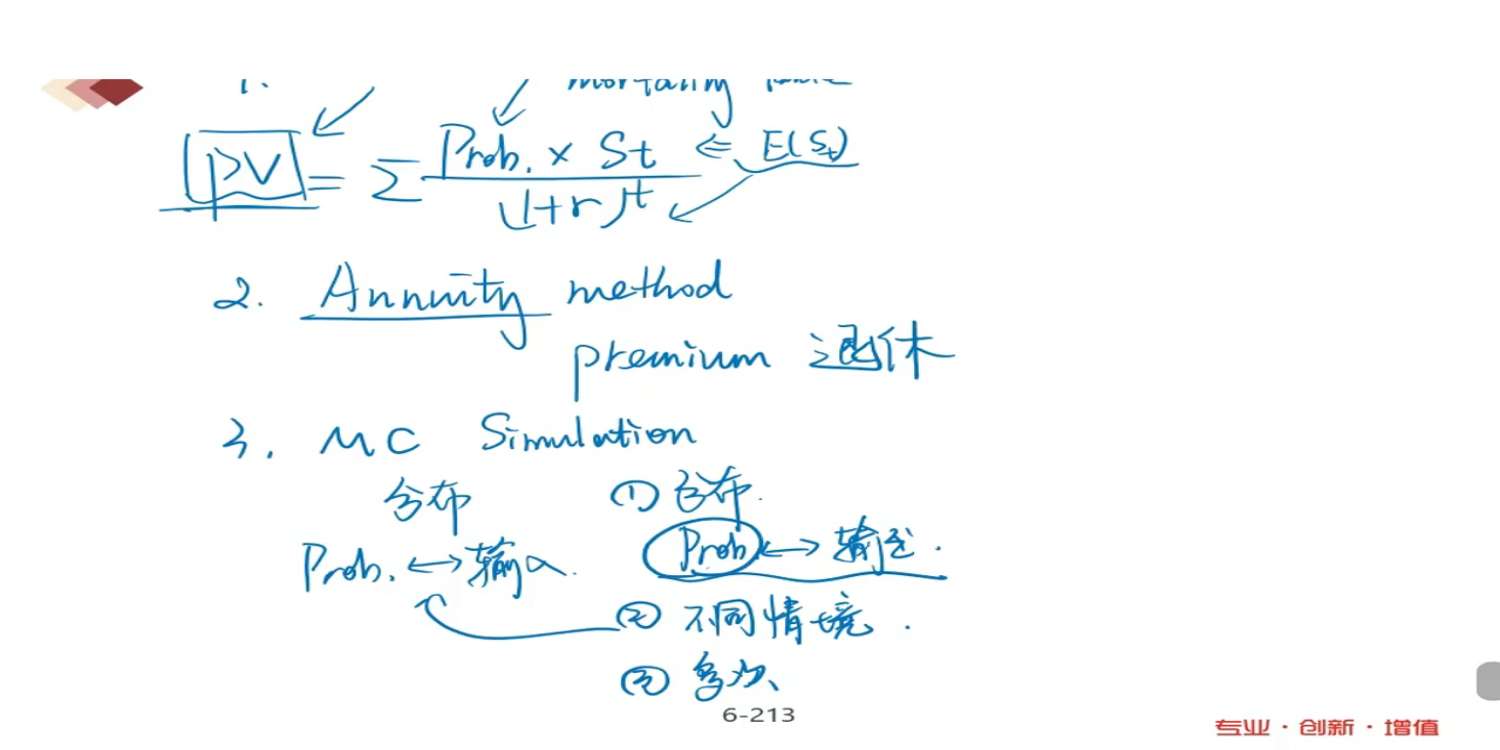 1. mortality table
PV = Σ Prob. × St / (1+r)^t ⇐ E(St)
2. Annuity method
premium 退休
3. MC Simulation
分布 ① 分布.
Prob. ↔ 输入. Prob ↔ 输出.
② 不同情境.
③ 多次
6-213
专业·创新·增值